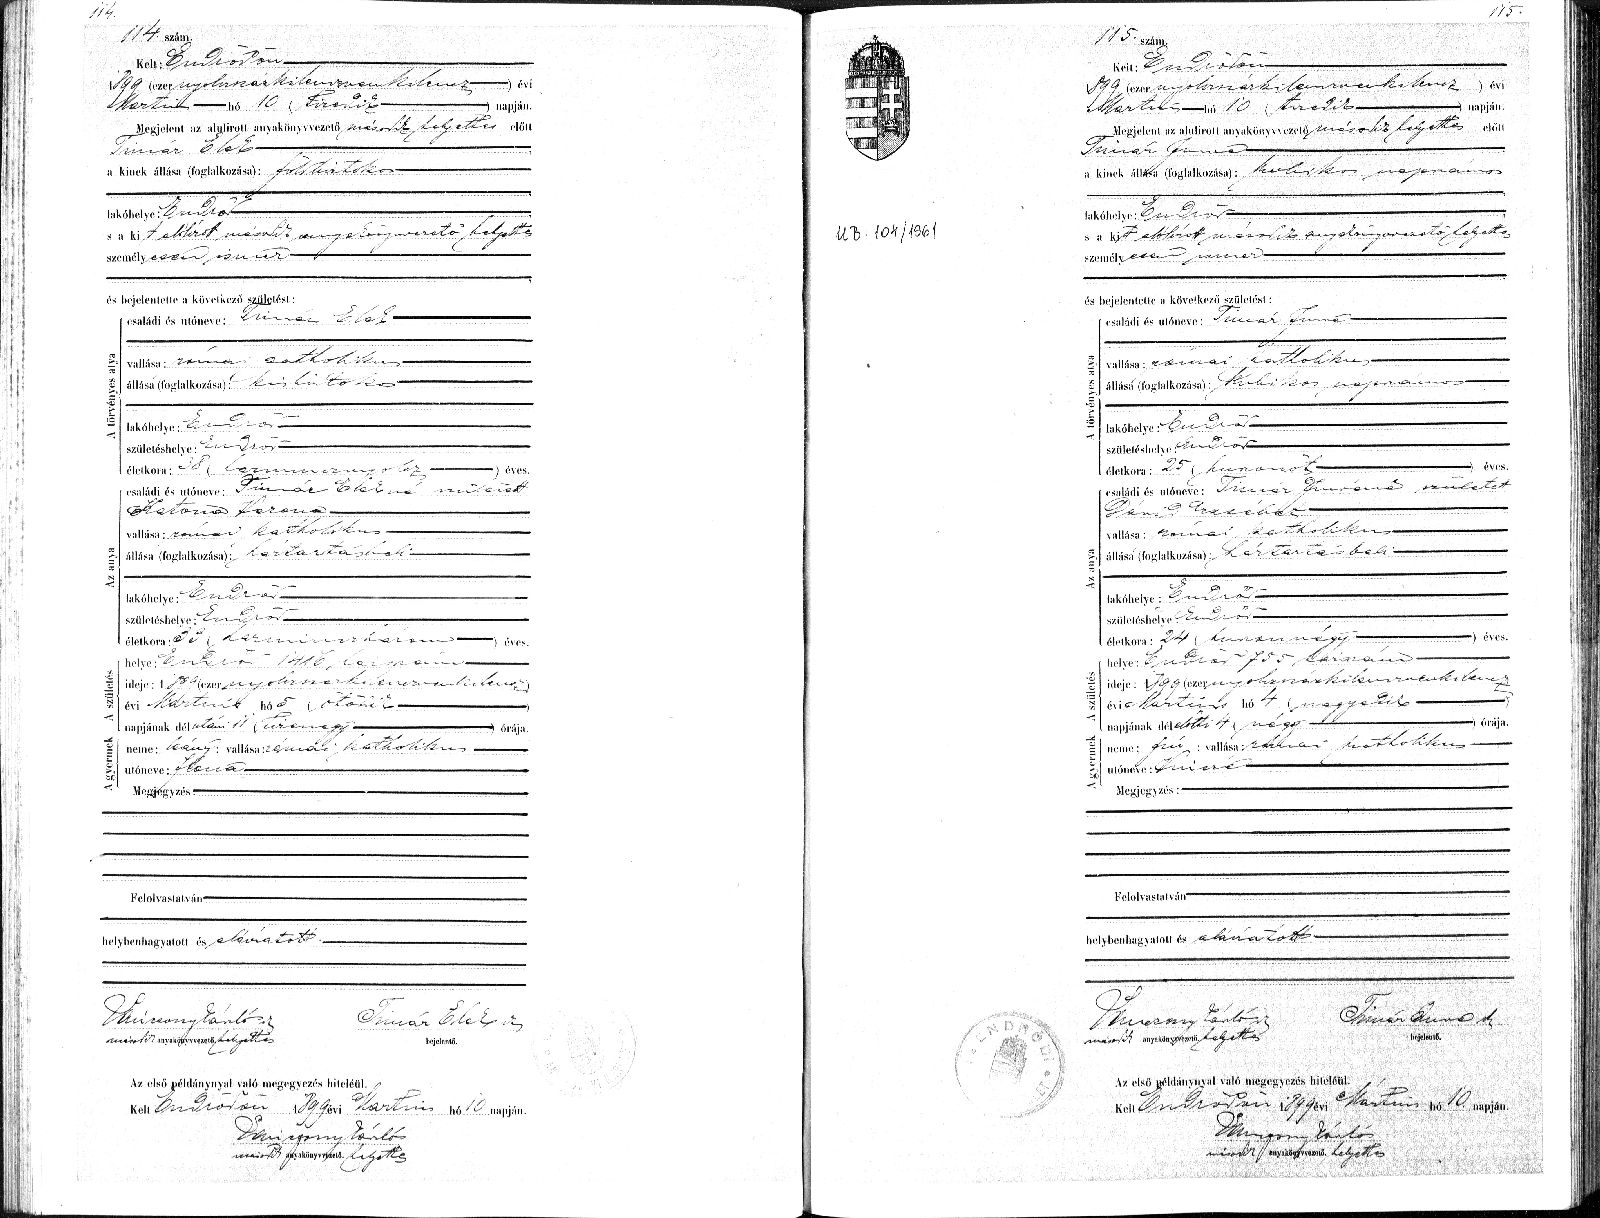 114.
114. szám.
Kelt: Endrődön
1899 (ezer nyolcszázkilencvenkilenc) évi
Martius hó 10 (tizedik) napján.
Megjelent az alulirott anyakönyvvezető második helyettes előtt
Timár Elek
a kinek állása (foglalkozása): földbirtokos
lakóhelye: Endrőd
s a kit alulirott második anyakönyvvezető helyettes
személyesen ismer
és bejelentette a következő születést:
A törvényes atya
családi és utóneve: Timár Elek
vallása: római catholikus
állása (foglalkozása): birtokos
lakóhelye: Endrőd
születéshelye: Endrőd
életkora: 38 (harmincznyolcz) éves.
Az anya
családi és utóneve: Timár Elekné született
Katona Ilona
vallása: római katholikus
állása (foglalkozása): háztartásbeli
lakóhelye: Endrőd
születéshelye: Endrőd
életkora: 33 (harminczhárom) éves.
A születés
helye: Endrőd házszám
ideje: 1899 (ezer nyolcszázkilencvenkilencz)
évi Martius hó 5 (ötödik)
napjának délután 11 (tizenegy) órája.
A gyermek
neme: leány; vallása: római katholikus
utóneve: Ilona
Megjegyzés:
Felolvastatván
helybenhagyatott és aláiratott
Timár Elek
második anyakönyvvezető helyettes bejelentő.
Az első példánynyal való megegyezés hiteléül.
Kelt Endrődön 1899 évi Martius hó 10 napján.
második anyakönyvvezető helyettes
UB. 104/1961
115.
115. szám.
Kelt: Endrődön
1899 (ezer nyolcszázkilencvenkilencz) évi
Martius hó 10 (tizedik) napján.
Megjelent az alulirott anyakönyvvezető második helyettes előtt
Timár Imre
a kinek állása (foglalkozása): kubikos napszámos
lakóhelye: Endrőd
s a kit alulirott második anyakönyvvezető helyettes
személyesen ismer
és bejelentette a következő születést:
A törvényes atya
családi és utóneve: Timár Imre
vallása: római katholikus
állása (foglalkozása): kubikos napszámos
lakóhelye: Endrőd
születéshelye: Endrőd
életkora: 25 (huszonöt) éves.
Az anya
családi és utóneve: Timár Imréné született
Dávid Erzsébet
vallása: római katholikus
állása (foglalkozása): háztartásbeli
lakóhelye: Endrőd
születéshelye: Endrőd
életkora: 24 (huszonnégy) éves.
A születés
helye: Endrőd 755 házszám
ideje: 1899 (ezer nyolcszázkilencvenkilencz)
évi Martius hó 4 (negyedik)
napjának délelőtt 4 (négy) órája.
A gyermek
neme: fiú; vallása: római katholikus
utóneve: Imre
Megjegyzés:
Felolvastatván
helybenhagyatott és aláiratott
Timár Imre
második anyakönyvvezető helyettes bejelentő.
ENDRŐDI
Az első példánynyal való megegyezés hiteléül.
Kelt Endrődön 1899 évi Mártius hó 10. napján.
második anyakönyvvezető helyettes